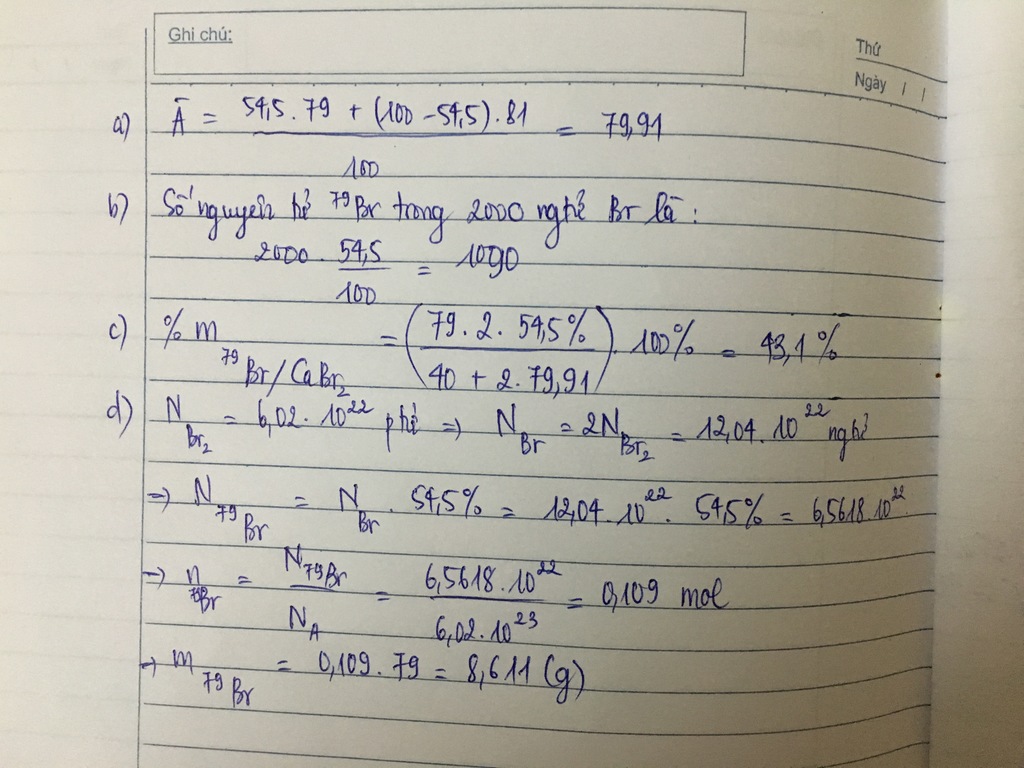 Ghi chú:
Thứ
Ngày / /
a) Ā = (54,5 . 79 + (100 - 54,5) . 81) / 100 = 79,91
b) Số nguyên tử ⁷⁹Br trong 2000 ngtử Br là :
2000 . 54,5 / 100 = 1090
c) % m ⁷⁹Br/CaBr₂ = (79 . 2 . 54,5% / (40 + 2 . 79,91)) . 100% = 43,1 %
d) N Br₂ = 6,02 . 10²² ptử => N Br = 2N Br₂ = 12,04 . 10²² ngtử
=> N ⁷⁹Br = N Br . 54,5% = 12,04 . 10²² . 54,5% = 6,5618 . 10²²
=> n ⁷⁹Br = N ⁷⁹Br / N_A = 6,5618 . 10²² / 6,02 . 10²³ = 0,109 mol
=> m ⁷⁹Br = 0,109 . 79 = 8,611 (g)